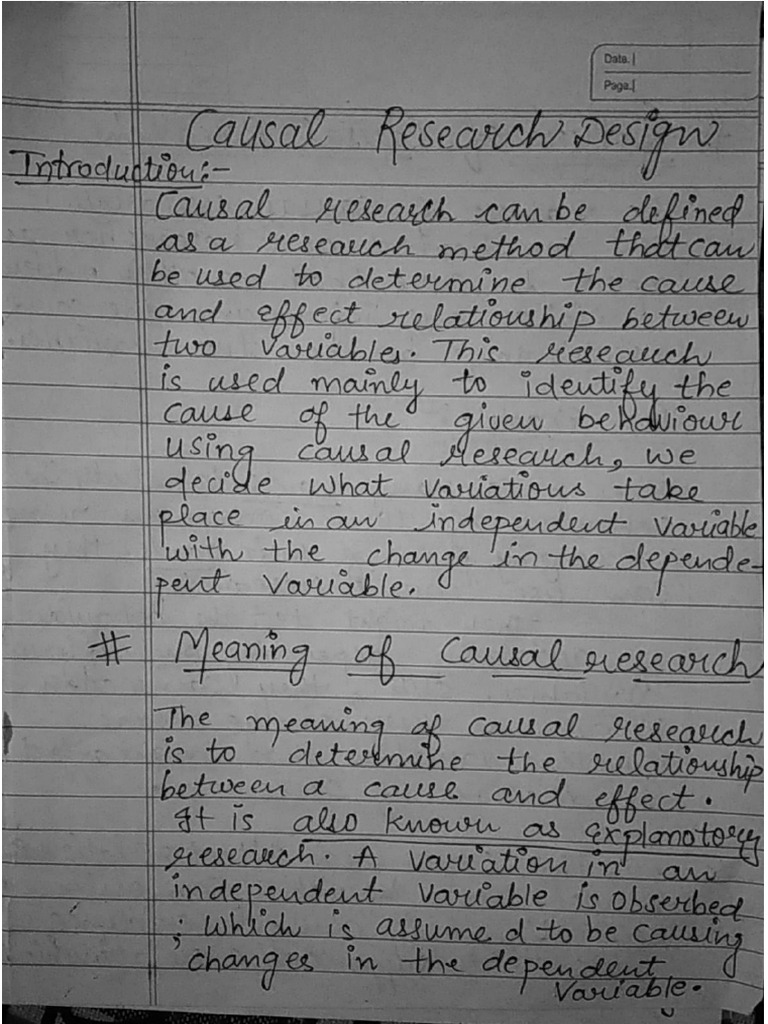 Date.
Page.
Causal Research Design
Introduction:-
Causal research can be defined
as a research method that can
be used to determine the cause
and effect relationship between
two variables. This research
is used mainly to identify the
cause of the given behaviour
using causal research, we
decide what variations take
place in an independent variable
with the change in the depende-
pent variable.
# Meaning of Causal research
The meaning of causal research
is to determine the relationship
between a cause and effect.
It is also known as explanotory
research. A variation in an
independent variable is obserbed
; which is assume d to be causing
changes in the dependent
variable.